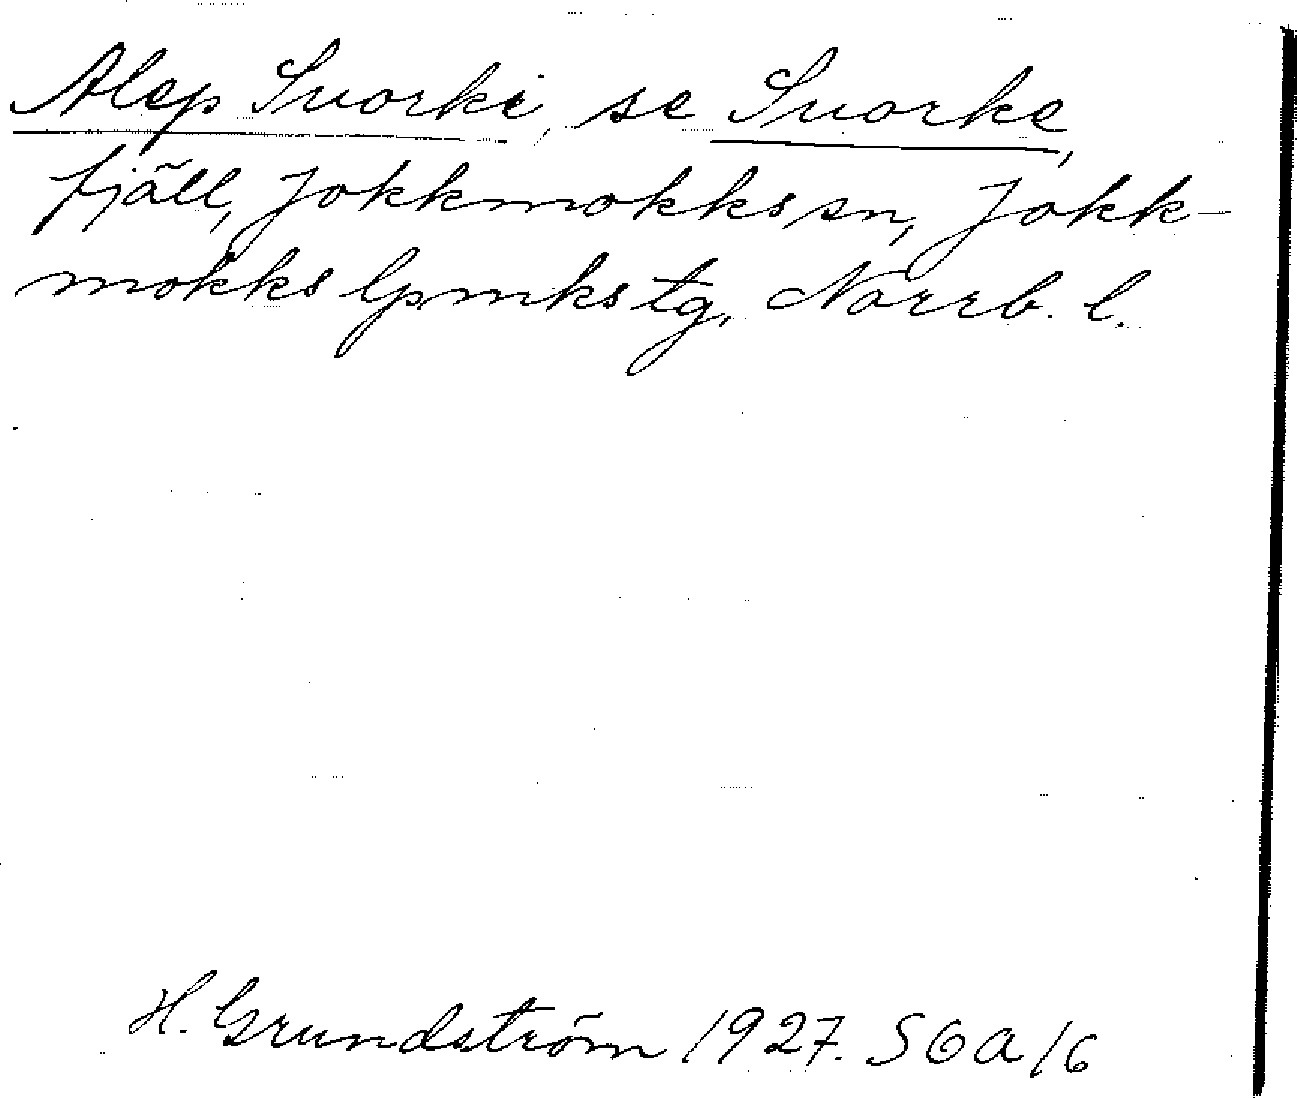 Alep Suorke, se Suorke,
fjäll, Jokkmokks sn, Jokk-
mokks lpmks tg, Norrb. l.
H. Grundström 1927. S G a / 6